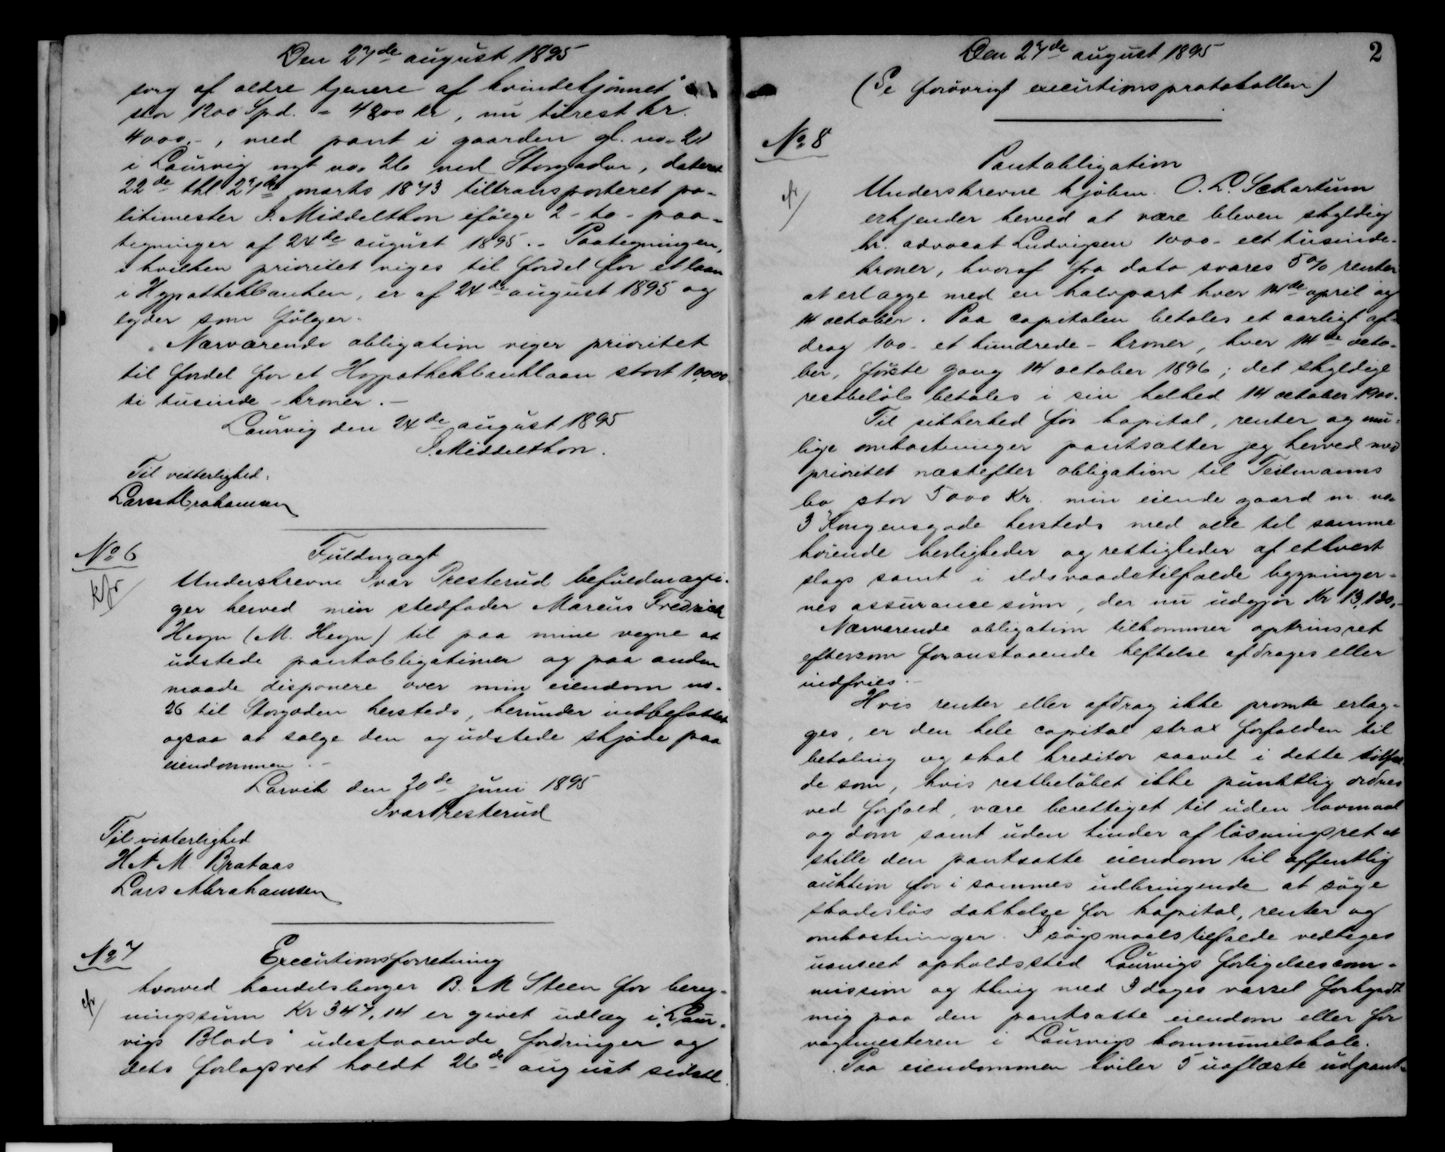 Den 27de august 1895
sorg af ældre tjenere af kvindekjönnet"
stor 1200 Spd. = 4800 kr, nu tilrest kr.
4000.-, med pant i gaarden gl. no. 21
i Laurvig nyt no. 26 ved Storgaden, dateret
22de thl. 27de marts 1873 tiltransporteret po-
litimester I. Middelthon ifölge 2 - to - paa-
tegninger af 24de august 1895. - Paategningen,
i hvilken prioritet viges til fordel for et laan
i Hypothekbanken, er af 24de august 1895 og
lyder som fölger.
"Nærværende obligation viger prioritet
til fordel for et Hypothekbanklaan stort 10,000
ti tusinde - kroner. -
Laurvig den 24de august 1895
I. Middelthon.
Til vitterlighed:
Lars Abrahamsen
No 6
Fuldmagt
kfr
Underskrevne Ivar Presterud befuldmægti-
ger herved min stedfader Marcus Fredrick
Hegn (M. Hegn) til paa mine vegne at
udstede pantobligationer og paa anden
maade disponere over min eiendom no.
26 til Storgaden hersteds, herunder indbefattet
ogsaa at sælge den og udstede skjöde paa
eiendommen. -
Larvik den 20de juni 1895
Ivar Presterud
Til vitterlighed
H A M Brataas
Lars Abrahamsen
No 7
Executionsforretning
cfr
hvorved handelsborger B. M. Steen for bereg-
ningssum Kr 347,14 er givet udlæg i "Laur-
vigs Blads" udestaaende fordringer og
dets forlagsret holdt 26de august sidstl.
Den 27de august 1895
2
(Se forövrigt executionsprotokollen)
No 8
Pantobligation
cfr
Underskrevne kjöbm. O. L. Schartum
erkjender herved at være bleven skyldig
hr. advocat Ludvigsen 1000 - ett tusinde-
kroner, hvoraf fra dato svares 5% renter
at erlægge med en halvpart hver 14de april og
14 october. Paa capitalen betales et aarligt af-
drag 100 - et hundrede - kroner, hver 14de octo-
ber, förste gang 14 october 1896; det skyldige
restbelöb betales i sin helhed 14 october 1900.
Til sikkerhed for kapital, renter og mu-
lige omkostninger pantsætter jeg herved med
prioritet næstefter obligation til Teilmanns
bo stor 5000 Kr. min eiende gaard m. no.
3 Kongensgade hersteds med alle til samme
höiende herligheder og rettigheder af ethvert
slags samt i ildsvaadetilfælde bygninger-
nes assurancesum, der nu udgjör Kr 13,180,-
Nærværende obligation tilkommer oprinsret
eftersom foranstaaende heftelse afdrages eller
indfries. -
Hvis renter eller afdrag ikke promte erlæg-
ges, er den hele capital strax forfalden til
betaling og skal kreditor saavel i dette tilfæl-
de som, hvis restbelöbet ikke punktlig ordnes
ved forfald, være berettiget til uden lovmaal
og dom samt uden hinder af lösningsret at
stille den pantsatte eiendom til offentlig
auktion for i sammes udbringende at söge
skadeslös dækkelse for kapital, renter og
omkostninger. I sögsmaalstilfælde vedtages
uanseet opholdssted Laurvigs forligelsescom-
mission og thing med 3 dages varsel forkyndt
mig paa den pantsatte eiendom eller for
vagtmesteren i Laurvigs kommunelokale.
Paa eiendommen hviler 5 uaflæste udpant-